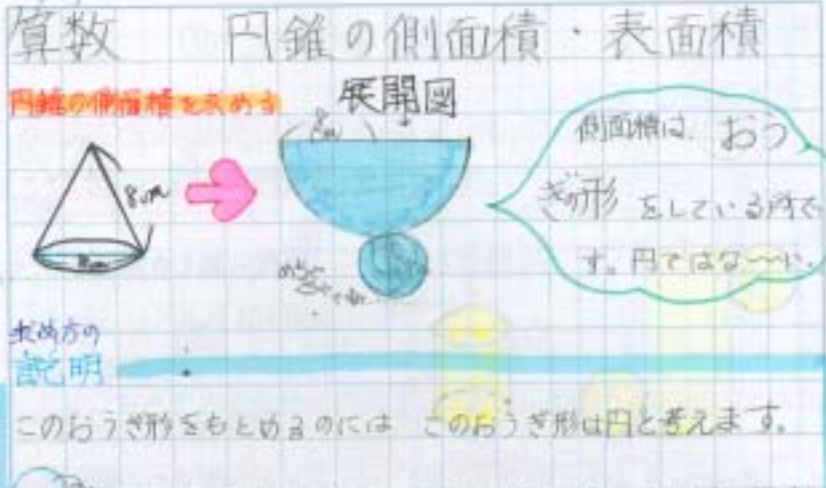 算数 円錐の側面積・表面積
円錐の側面積を求める
展開図
8cm
8cm
8cm
側面積は、おう
ぎの形をしている所で
す。円ではな〜い。
求め方の
説明
このおうぎ形をもとめるのには このおうぎ形は円と考えます。